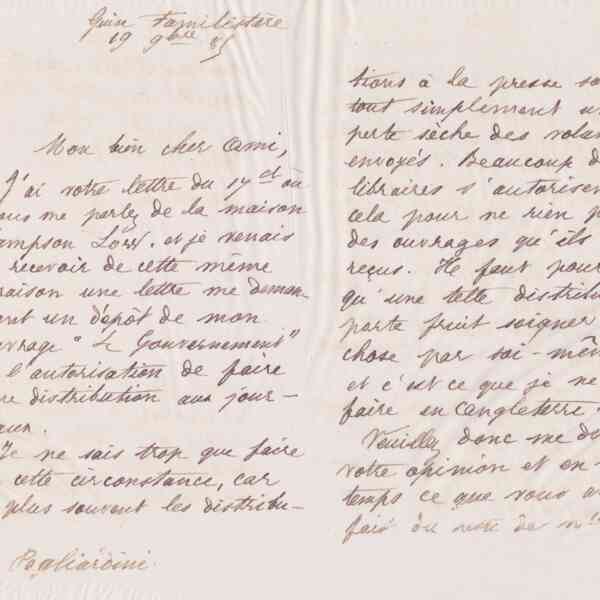 Guise Familistère
19 9bre 85
Mon bien cher Ami,
J'ai votre lettre du 17 ct où
ous me parlez de la maison
ampson Low. et je venais
recevoir de cette même
aison une lettre me deman-
ant un dépôt de mon
uvrage "Le Gouvernement"
l'autorisation de faire
ne distribution aux jour-
aux.
Je ne sais trop que faire
cette circonstance, car
plus souvent les distribu-
Pagliardini
tions à la presse so
tout simplement u
perte sèche des volu
envoyés. Beaucoup d
libraires s'autorisen
cela pour ne rien p
des ouvrages qu'ils
reçus. Il faut pour
qu'une telle distribu
porte fruit soigner
chose par soi-mêm
et c'est ce que je ne
faire en Angleterre.
Veuillez donc me d
votre opinion et en
temps ce que vous a
fait du